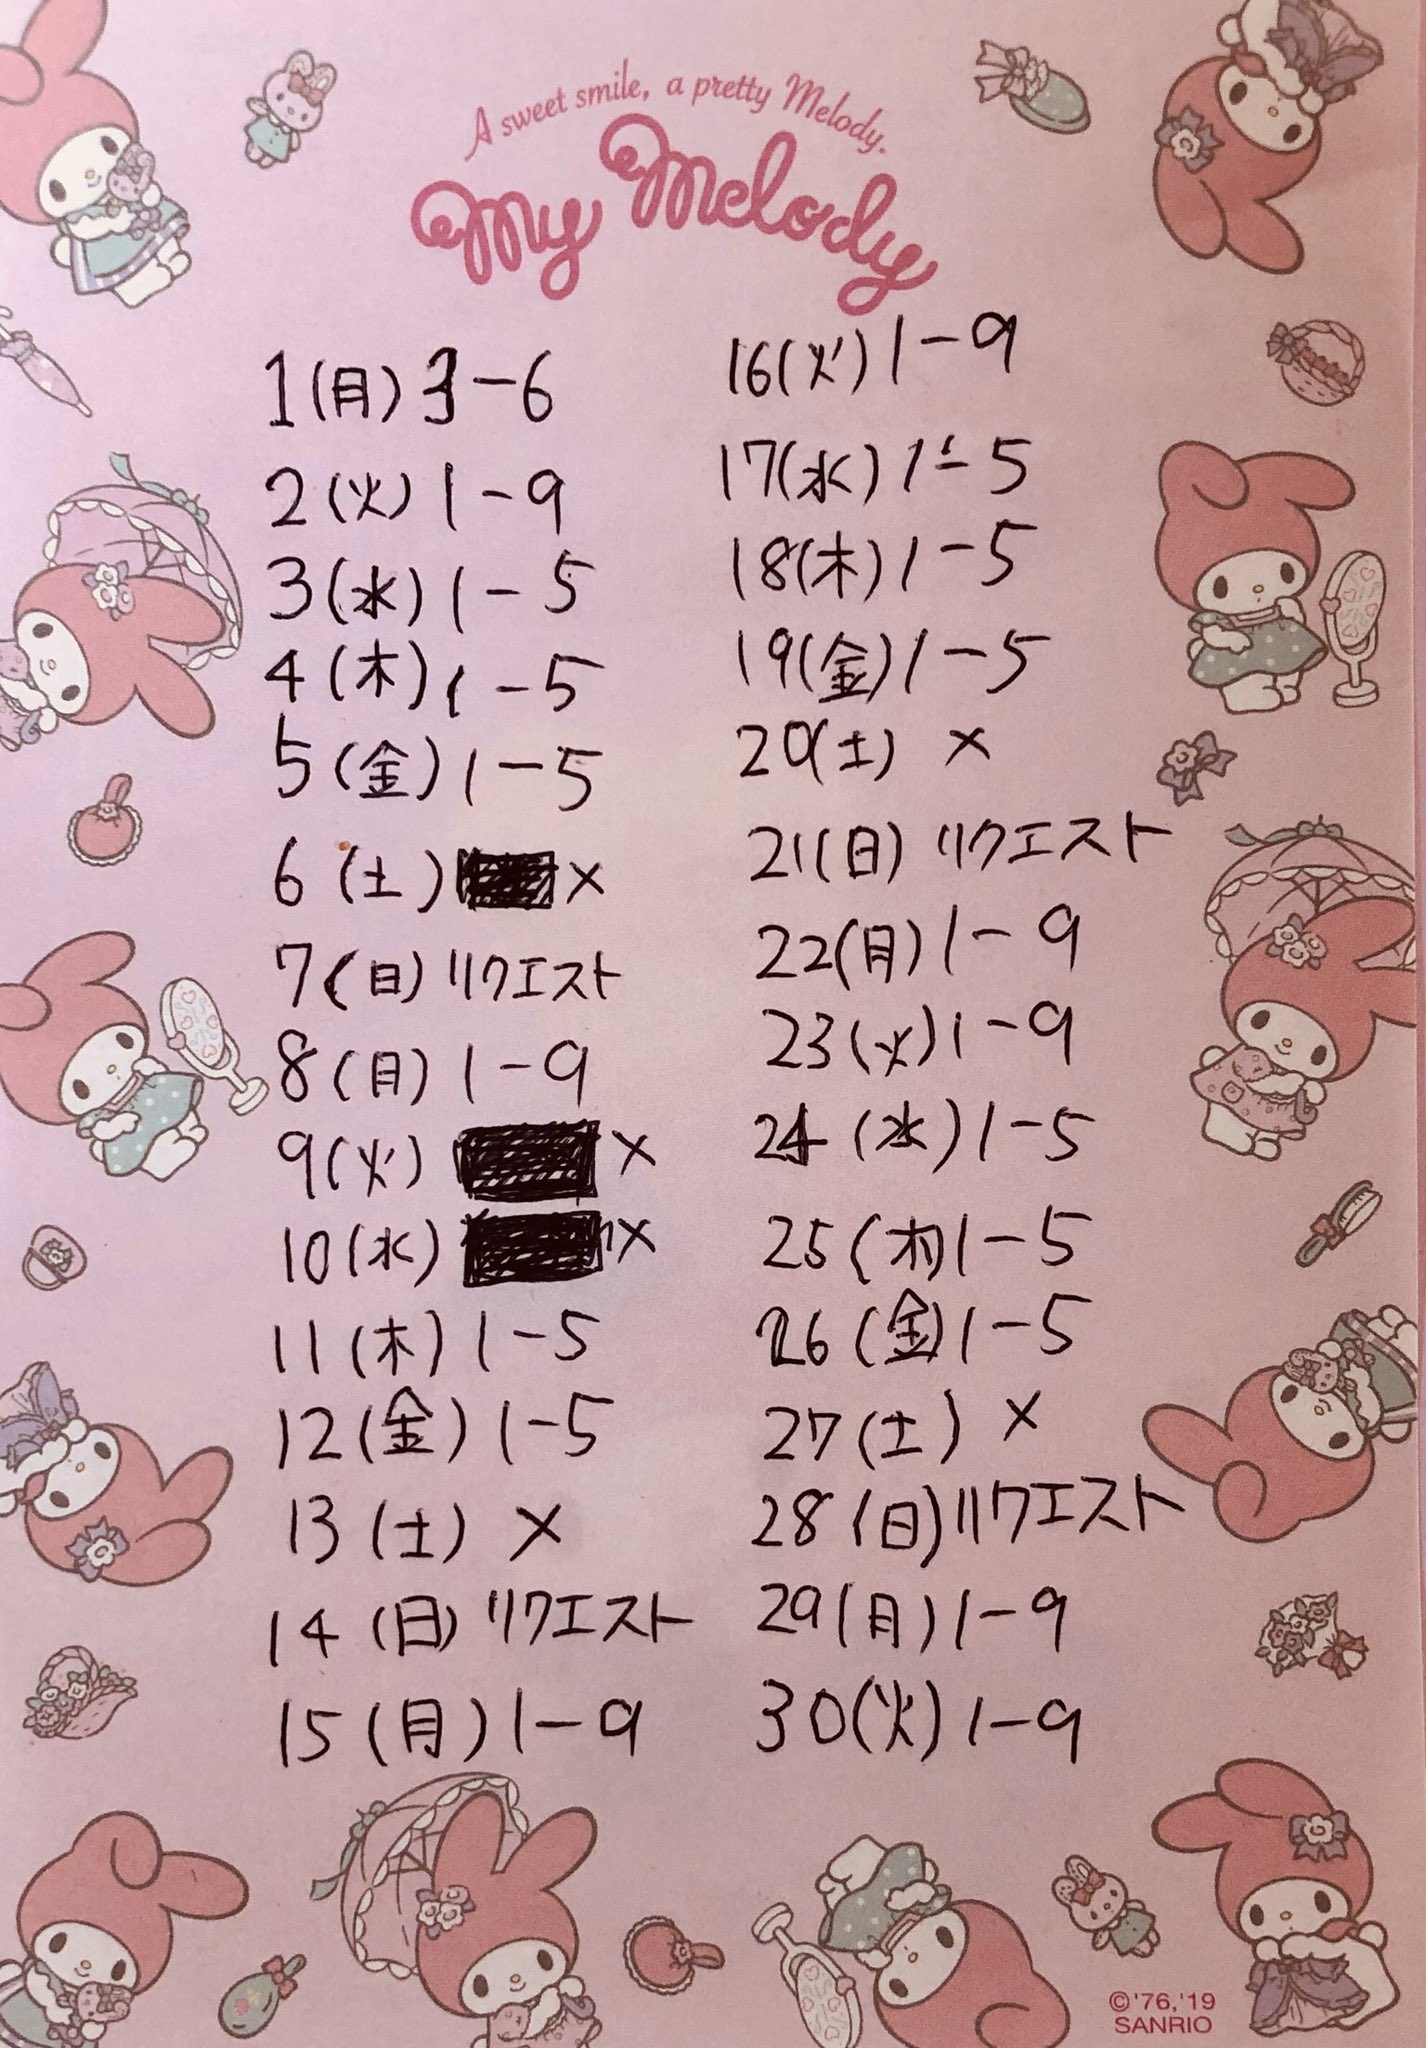 A sweet smile, a pretty Melody.
My Melody
1(月)3-6
2(火)1-9
3(水)1-5
4(木)1-5
5(金)1-5
6(土)×
7(日)リクエスト
8(月)1-9
9(火)×
10(水)×
11(木)1-5
12(金)1-5
13(土)×
14(日)リクエスト
15(月)1-9
16(火)1-9
17(水)1-5
18(木)1-5
19(金)1-5
20(土)×
21(日)リクエスト
22(月)1-9
23(火)1-9
24(水)1-5
25(木)1-5
26(金)1-5
27(土)×
28(日)リクエスト
29(月)1-9
30(火)1-9
©'76,'19
SANRIO